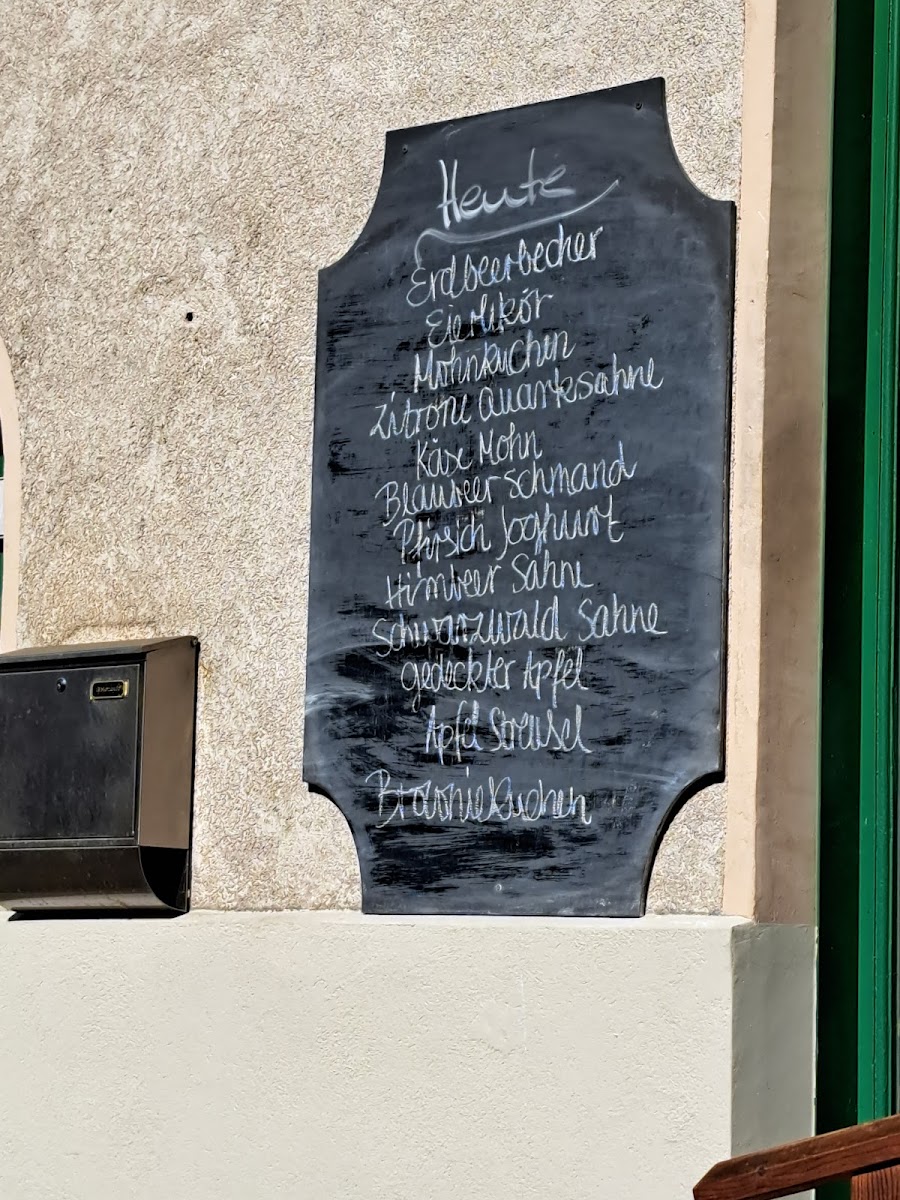 Heute
Erdbeerbecher
Eierlikör
Mohnkuchen
Zitrone Quarksahne
Käse Mohn
Blaubeer Schmand
Pfirsich Joghurt
Himbeer Sahne
Schwarzwald Sahne
gedeckter Apfel
Apfel Streusel
Browniekuchen